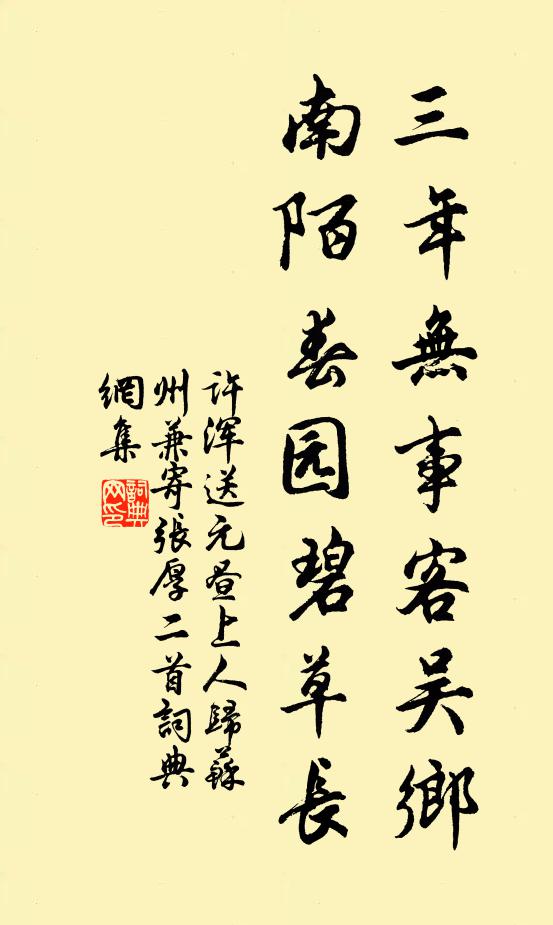 三年無事客吴鄉
南陌春园碧草長
许浑送元昼上人歸蘇
州兼寄張厚二首詞典
網集
詞典網印